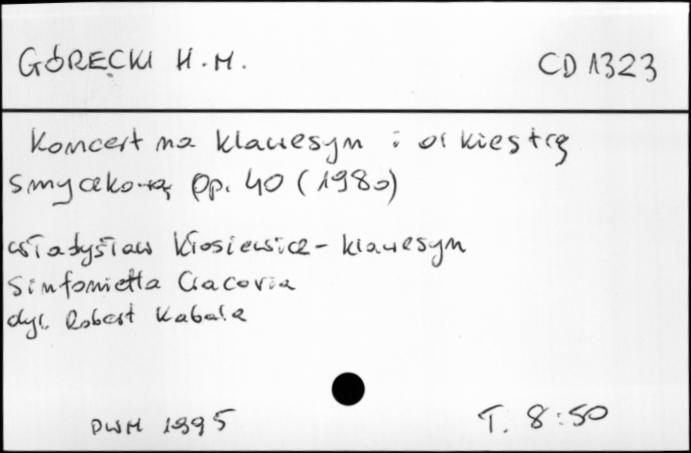 GÓRECKI H.M.
CD 1323
Koncert na klawesyn i orkiestrę
smyczkową Op. 40 (1980)
Władysław Kłosiewicz - klawesyn
Sinfonietta Cracovia
dyr. Robert Kabara
PWM 1995
T. 8:50